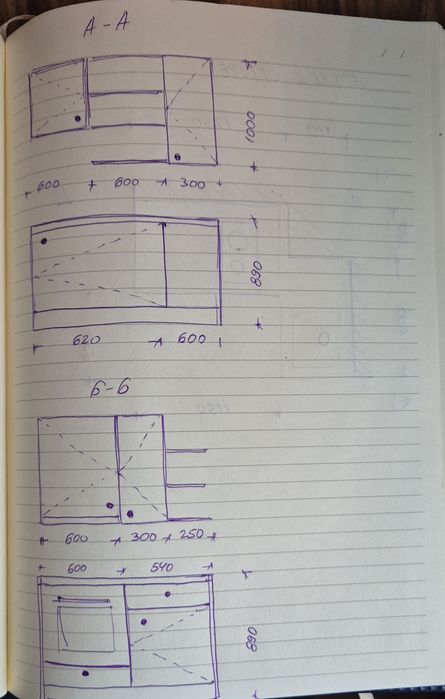 А-А
1000
600 600 300
890
620 600
Б-Б
600 300 250
600 540
890